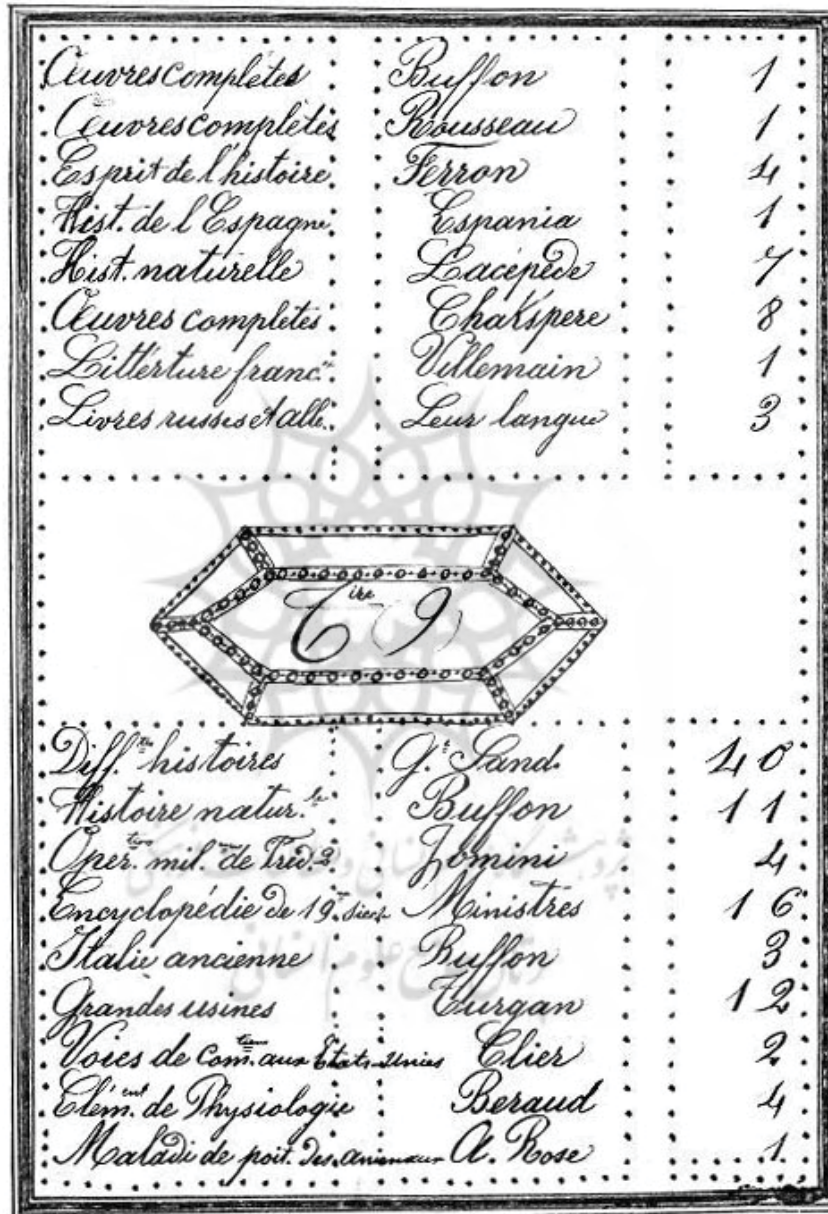 Œuvres complétes Buffon 1
Œuvres complétes Rousseau 1
Esprit de l'histoire Ferron 4
Hist. de l Espagne Espania 1
Hist. naturelle Lacépède 7
Œuvres complétes Chakspere 8
Littérture franc.se Villemain 1
Livres russes et alle. Leur langue 3
Tire 9
Diff.tes histoires G.e Sand. 40
Histoire natur.le Buffon 11
Oper.tions mil.res de Fréd. 2 Jomini 4
Encyclopédie de 19.e siecle Ministres 16
Italie ancienne Buffon 3
Grandes usines Turgan 12
Voies de Com.tions aux Etats-Unies Clier 2
Elém.ent de Physiologie Beraud 4
Maladi de poit. des animaux A. Rose 1
پژوهشگاه علوم انسانی و مطالعات فرهنگی
پرتال جامع علوم انسانی